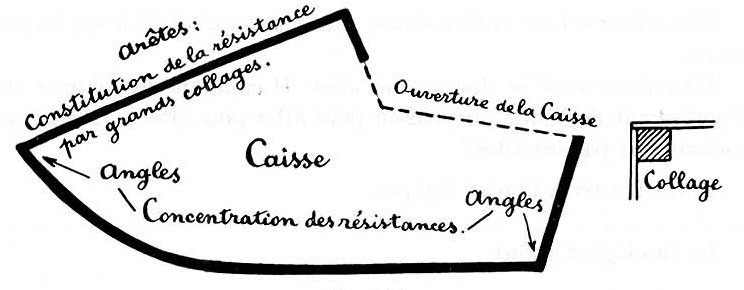 Arêtes:
Constitution de la résistance
par grands collages.
Ouverture de la Caisse
Caisse
Angles
Concentration des résistances.
Angles
Collage